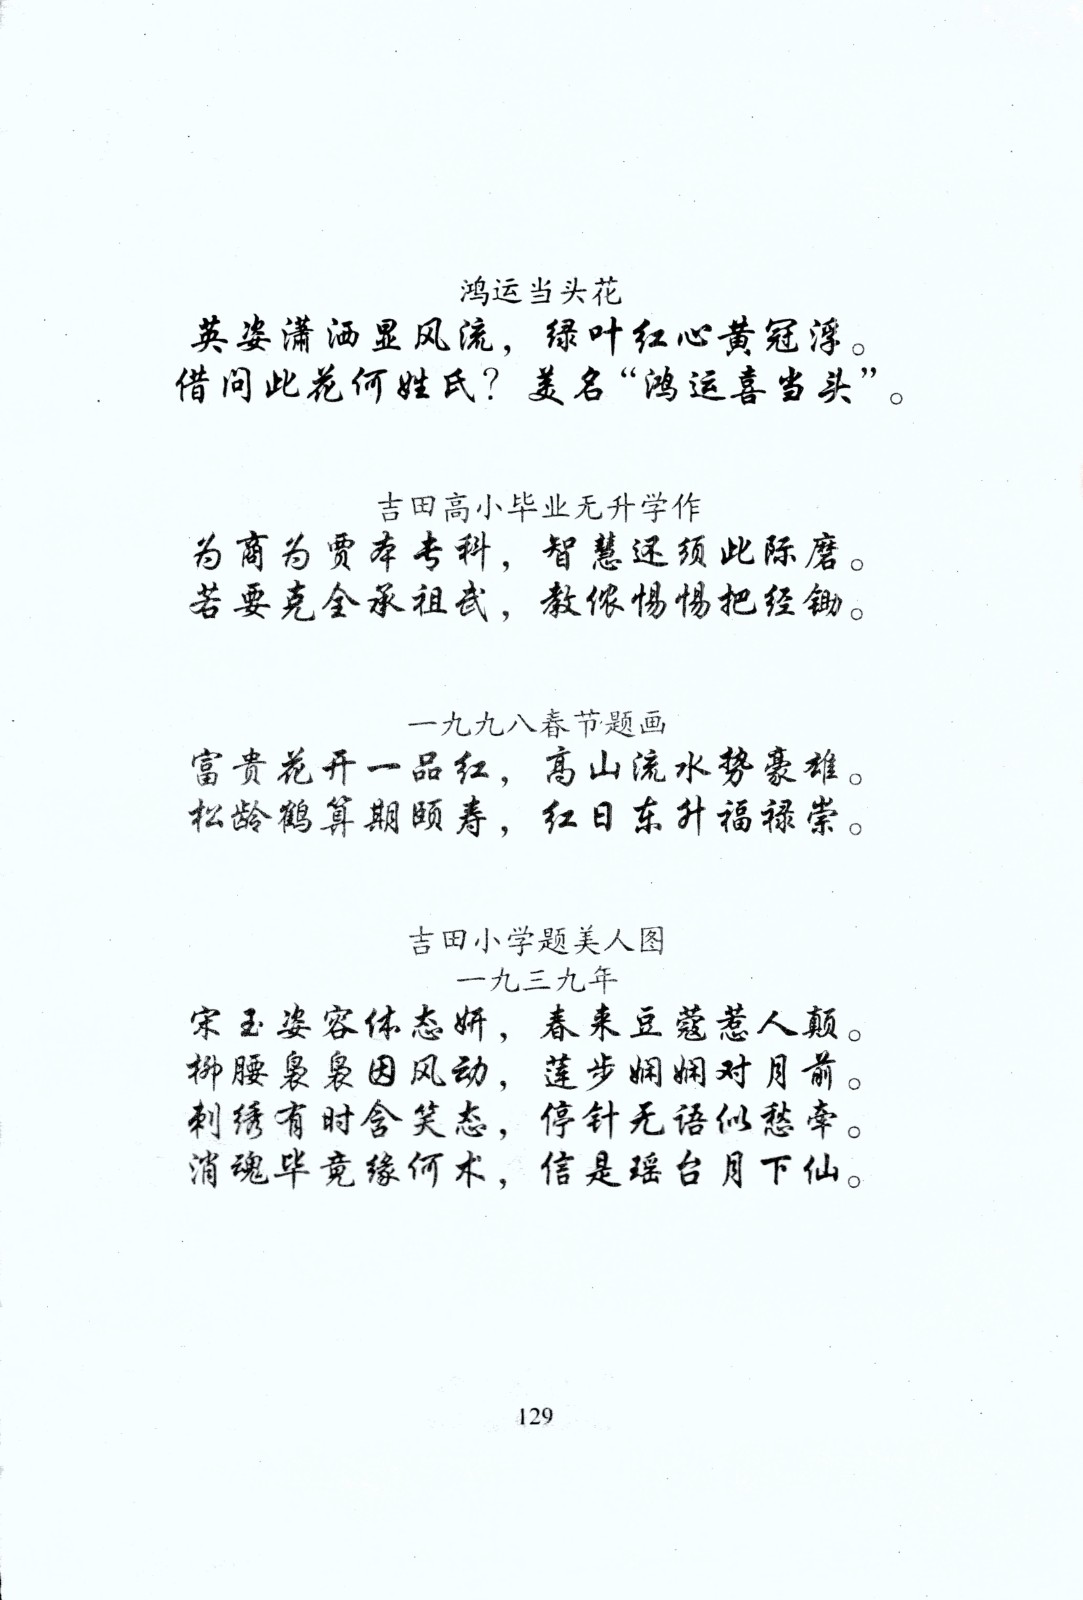 鸿运当头花
英姿潇洒显风流，绿叶红心黄冠浮。
借问此花何姓氏？美名“鸿运喜当头”。
吉田高小毕业无升学作
为商为贾本专科，智慧还须此际磨。
若要克全承祖武，教侬惕惕把经锄。
一九九八春节题画
富贵花开一品红，高山流水势豪雄。
松龄鹤算期颐寿，红日东升福禄崇。
吉田小学题美人图
一九三九年
宋玉姿容体态妍，春来豆蔻惹人颠。
柳腰袅袅因风动，莲步娴娴对月前。
刺绣有时含笑态，停针无语似愁牵。
消魂毕竟缘何术，信是瑶台月下仙。
129